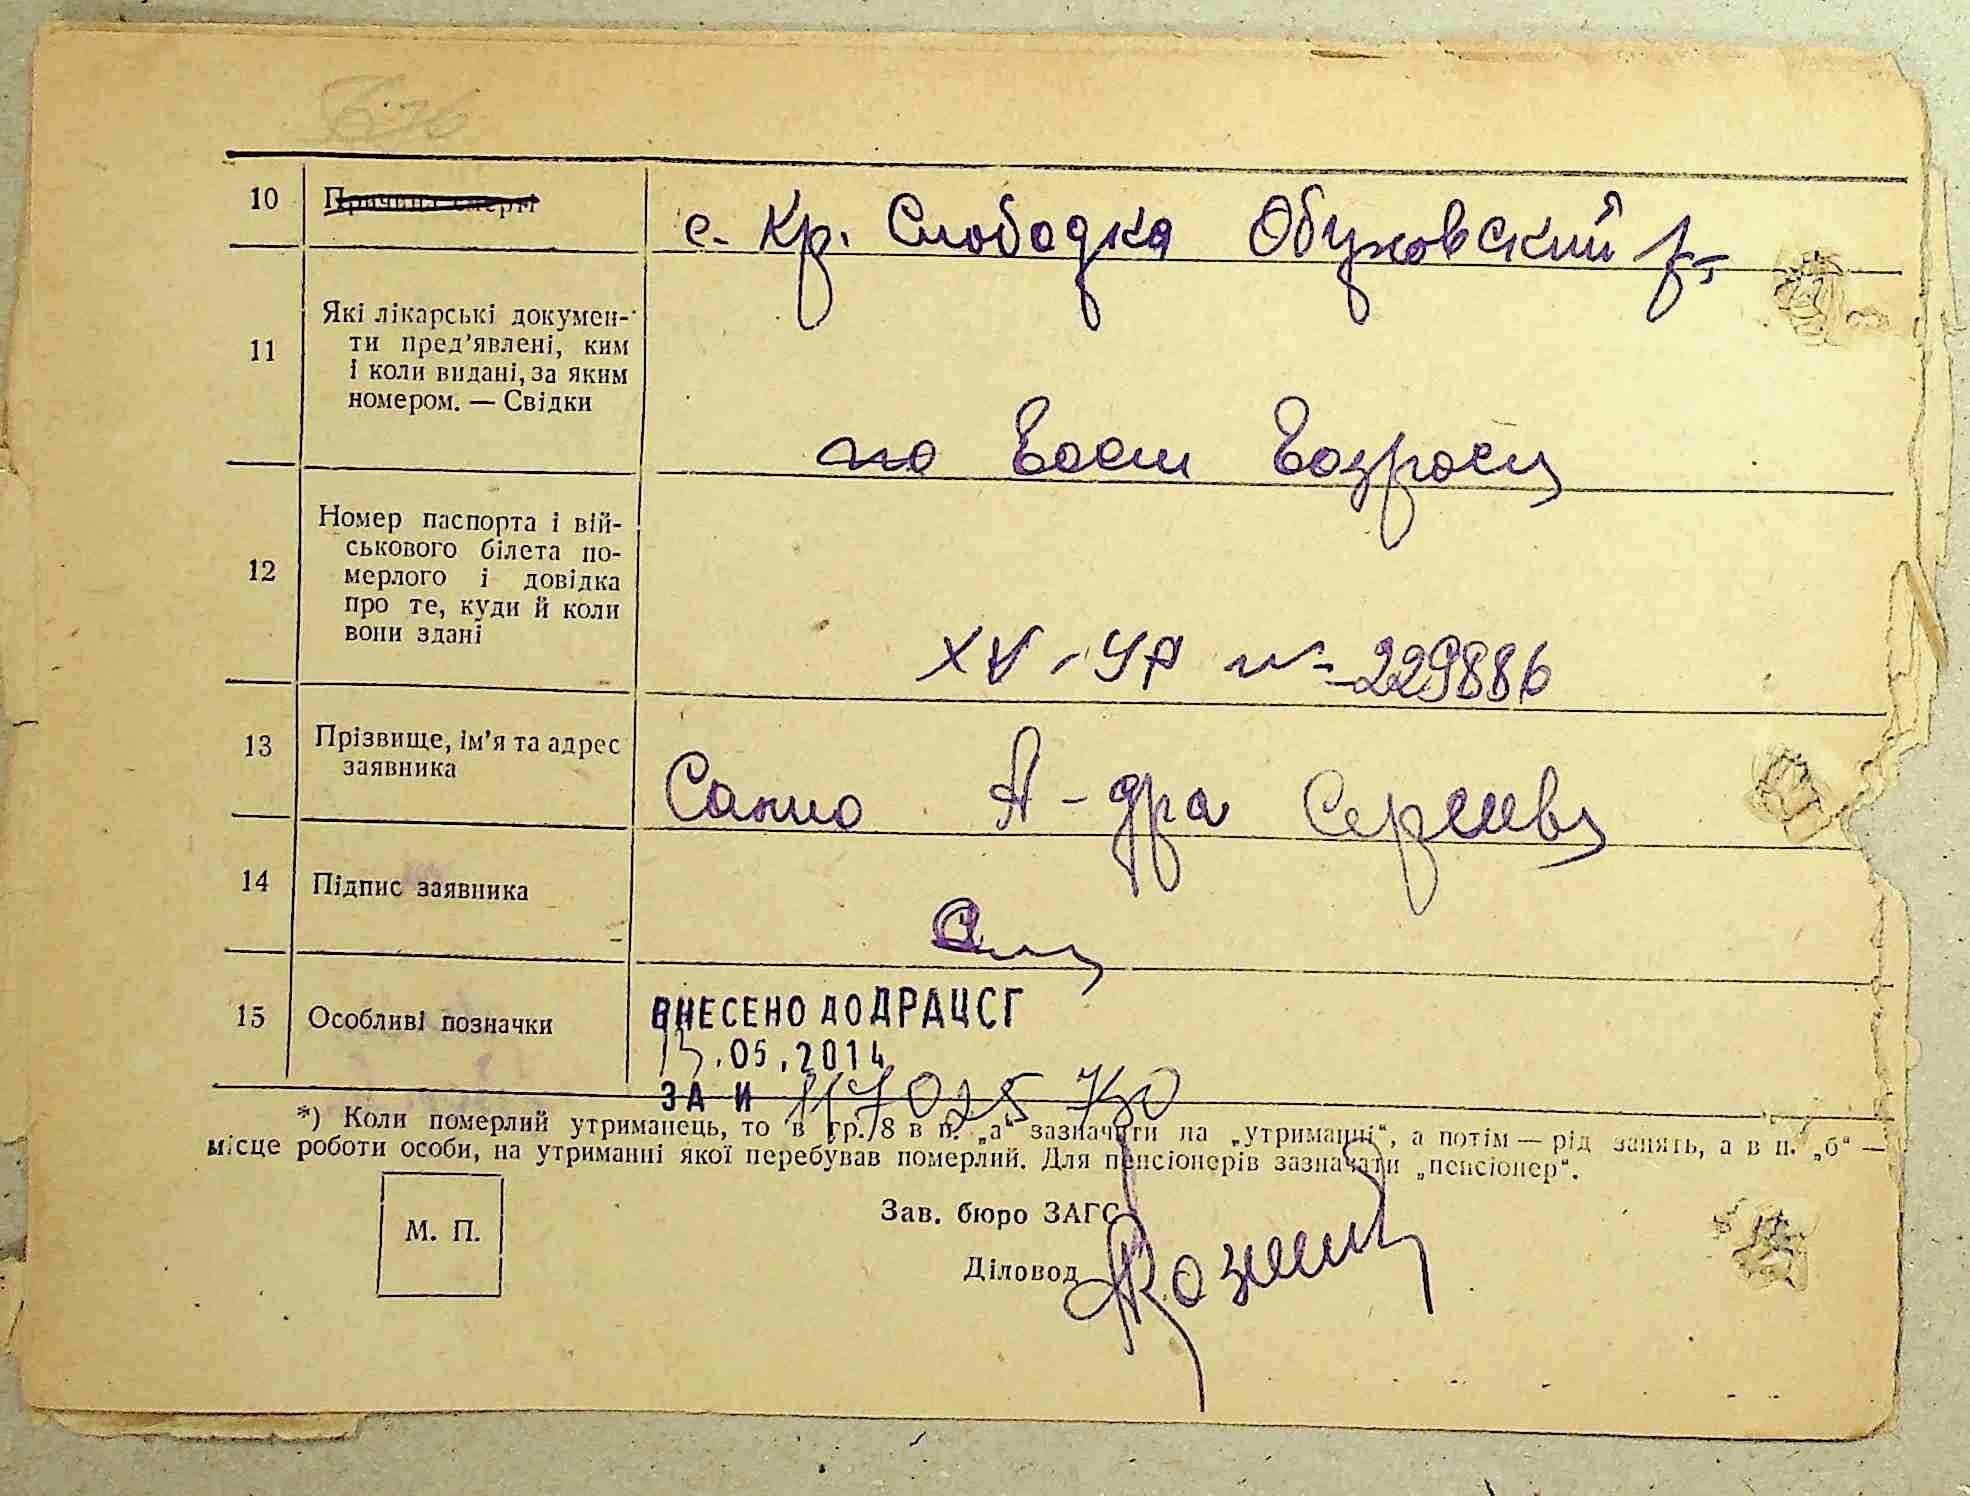 10 Причина смерті с. Кр. Слободка Обуховский р-
11 Які лікарські докумен-
ти пред'явлені, ким
і коли видані, за яким
номером. — Свідки
по
12 Номер паспорта і вій-
ськового білета по-
мерлого і довідка
про те, куди й коли
вони здані
XV-УР № 229886
13 Прізвище, ім'я та адрес
заявника
А-дра
14 Підпис заявника
15 Особливі позначки
ВНЕСЕНО ДО ДРАЦСГ
13.05.2014
ЗА И
*) Коли померлий утриманець, то в гр. 8 в п. „а" зазначити на „утриманні", а потім — рід занять, а в п. „б" —
місце роботи особи, на утриманні якої перебував померлий. Для пенсіонерів зазначати „пенсіонер".
М. П.
Зав. бюро ЗАГС
Діловод